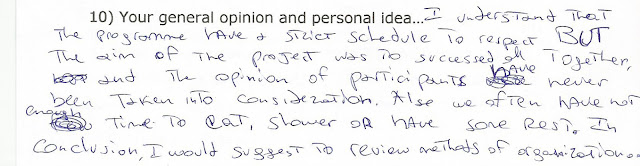 10) Your general opinion and personal idea... I understand that
The programme have a strict schedule to respect BUT
The aim of the project was to successed all Together,
and the opinion of participants have never
been Taken into consideration. Also we often have not
enough Time To eat, shower or have some rest. In
conclusion, I would suggest to review methods of organization.